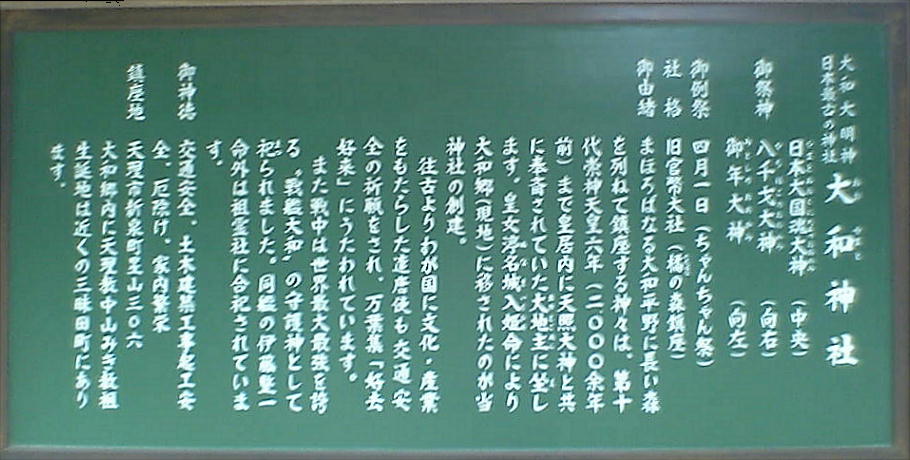 大和大明神
日本最古の神社
大和神社
御祭神
日本大国魂大神（中央）
八千戈大神（向右）
御年大神（向左）
御例祭 四月一日（ちゃんちゃん祭）
社格 旧官幣大社（橘の森鎮座）
御由緒 まほろばなる大和平野に長い森
を列ねて鎮座する神々は、第十
代崇神天皇六年（二〇〇〇余年
前）まで皇居内に天照大神と共
に奉斎されていた大地主に坐し
ます。皇女渟名城入姫命により
大和郷（現地）に移されたのが当
神社の創建。
往古よりわが国に文化・産業
をもたらした遣唐使も交通安
全の祈願をされ、万葉集「好去
好来」にうたわれています。
また戦中は世界最大最強を誇
る“戦艦大和”の守護神として
祀られました。同艦の伊藤整一
命外は祖霊社に合祀されていま
す。
御神徳 交通安全、土木建築工事起工安
全、厄除け、家内繁栄
鎮座地 天理市新泉町星山三〇六
大和郷内に天理教中山みき教祖
生誕地は近くの三昧田町にあり
ます。